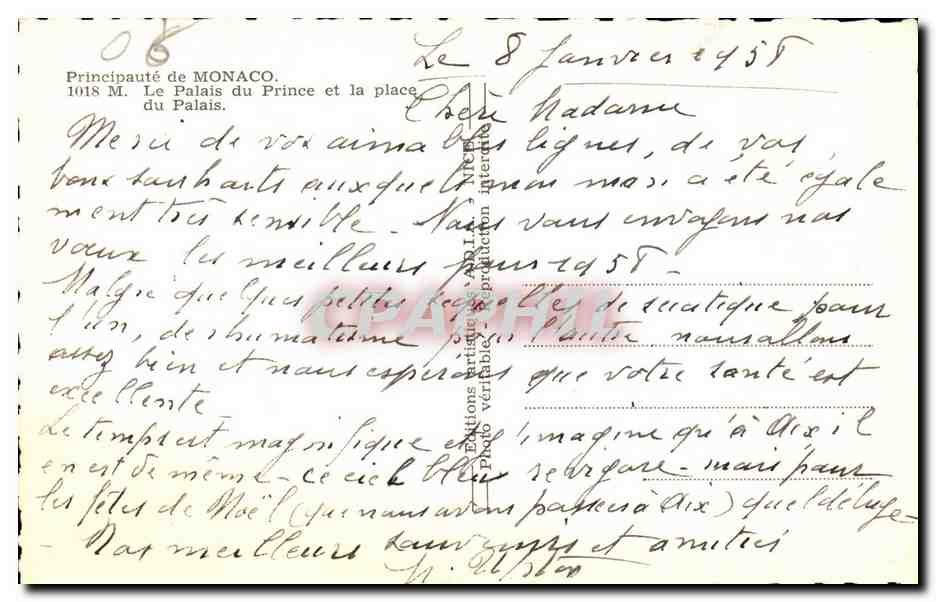 08
Le 8 Janvier 1958
Principauté de MONACO.
1018 M. Le Palais du Prince et la place
du Palais.
Chère Madame
Merci de vos aimables lignes, de vos
bons souhaits auxquels mon mari a été égale
ment très sensible. Nous vous envoyons nos
vœux les meilleurs pour 1958 -
Malgré quelques petites séquelles de sciatique pour
l'un, de rhumatisme pour l'autre nous allons
assez bien et nous espérons que votre santé est
excellente
Le temps est magnifique et j'imagine qu'à Aix il
en est de même - ce ciel bleu revigore - mais pour
les fêtes de Noël (que nous avons passées à Aix) quel déluge -
- Nos meilleurs souvenirs et amitiés
Editions artistiques "ADIA" - NICE
Photo véritable - Reproduction interdite
CPAPHIL